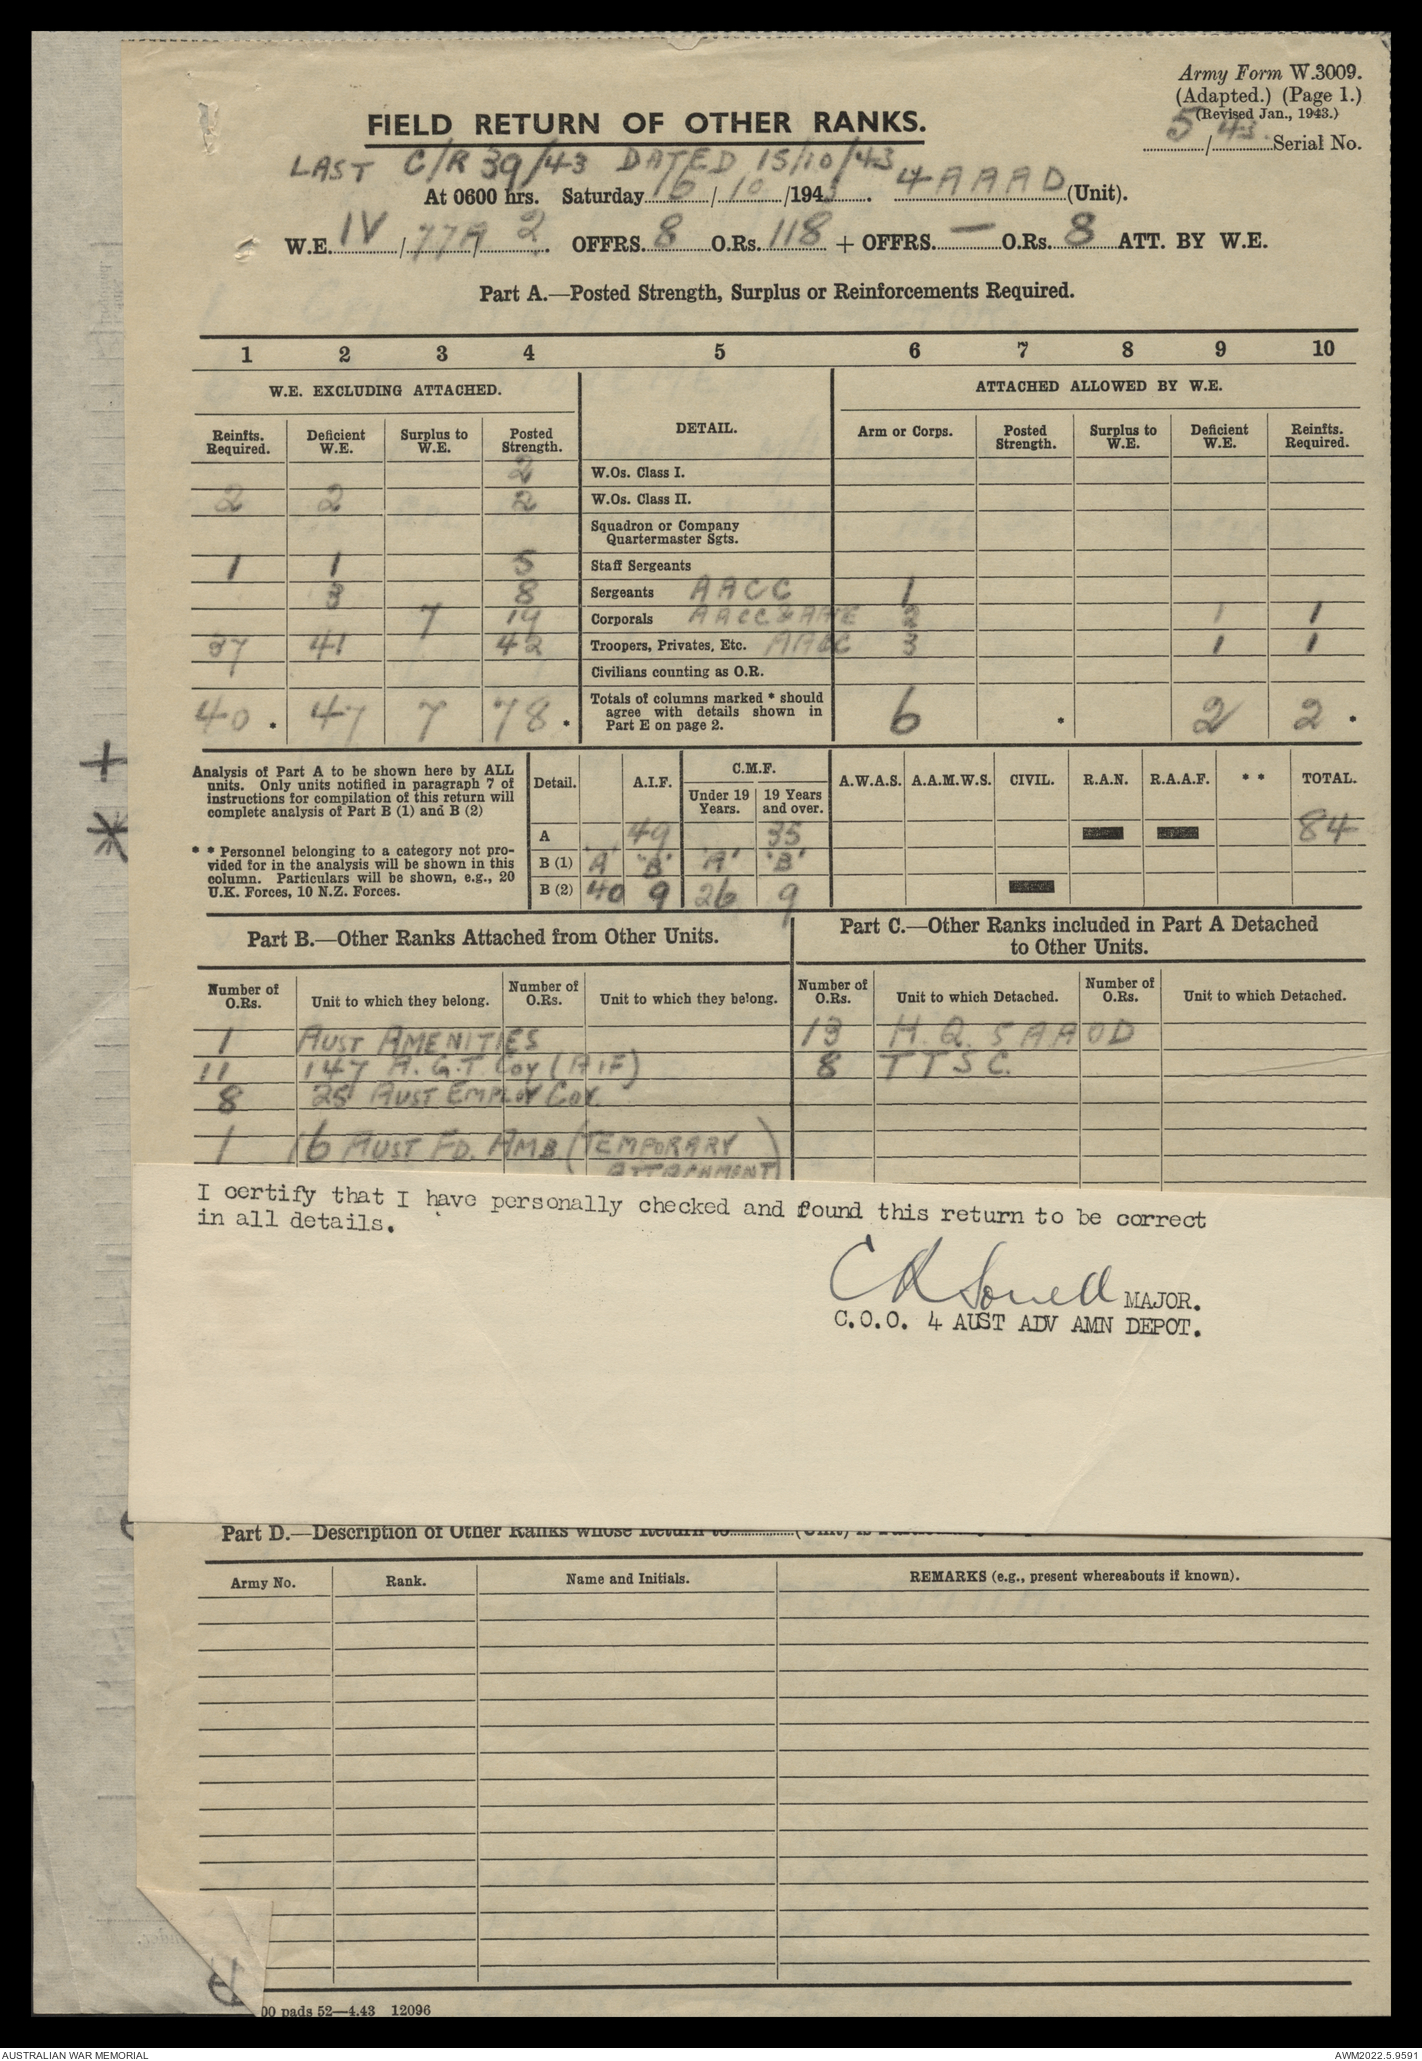 Army Form W.3009.
(Adapted.) (Page 1.)
(Revised Jan., 1943.)
5/43 Serial No.
FIELD RETURN OF OTHER RANKS.
LAST C/R 39/43 DATED 15/10/43
At 0600 hrs. Saturday 16/10/1943. 4 AAAD (Unit).
W.E. IV/77A/2. OFFRS. 8 O.Rs. 118 + OFFRS. — O.Rs. 8 ATT. BY W.E.
Part A.—Posted Strength, Surplus or Reinforcements Required.
1 2 3 4 5 6 7 8 9 10
W.E. EXCLUDING ATTACHED. DETAIL. ATTACHED ALLOWED BY W.E.
Reinfts. Required. Deficient W.E. Surplus to W.E. Posted Strength. Arm or Corps. Posted Strength. Surplus to W.E. Deficient W.E. Reinfts. Required.
2 W.Os. Class I.
2 2 2 W.Os. Class II.
Squadron or Company
Quartermaster Sgts.
1 1 5 Staff Sergeants
3 8 Sergeants AACC 1
7 14 Corporals AACC & AAME 2 1 1
37 41 42 Troopers, Privates, Etc. AACC 3 1 1
Civilians counting as O.R.
40 * 47 7 78 * Totals of columns marked * should
agree with details shown in
Part E on page 2. 6 * 2 2 *
+
*
Analysis of Part A to be shown here by ALL
units. Only units notified in paragraph 7 of
instructions for compilation of this return will
complete analysis of Part B (1) and B (2)
* * Personnel belonging to a category not pro-
vided for in the analysis will be shown in this
column. Particulars will be shown, e.g., 20
U.K. Forces, 10 N.Z. Forces.
Detail. A.I.F. C.M.F. A.W.A.S. A.A.M.W.S. CIVIL. R.A.N. R.A.A.F. * * TOTAL.
Under 19 Years. 19 Years and over.
A 49 35 84
B (1) 'A' 'B' 'A' 'B'
B (2) 40 9 26 9
Part B.—Other Ranks Attached from Other Units.
Part C.—Other Ranks included in Part A Detached
to Other Units.
Number of O.Rs. Unit to which they belong. Number of O.Rs. Unit to which they belong. Number of O.Rs. Unit to which Detached. Number of O.Rs. Unit to which Detached.
1 AUST AMENITIES 13 H.Q. 5 AAOD
11 147 A.G.T. Coy (AIF) 8 TTSC.
8 25 AUST EMPLOY COY.
1 16 AUST FD. AMB (TEMPORARY
ATTACHMENT)
I certify that I have personally checked and found this return to be correct
in all details.
MAJOR.
C.O.O. 4 AUST ADV AMN DEPOT.
Part D.—Description of Other Ranks whose Return to (Unit) is
Army No. Rank. Name and Initials. REMARKS (e.g., present whereabouts if known).
00 pads 52—4.43 12096
AUSTRALIAN WAR MEMORIAL
AWM2022.5.9591